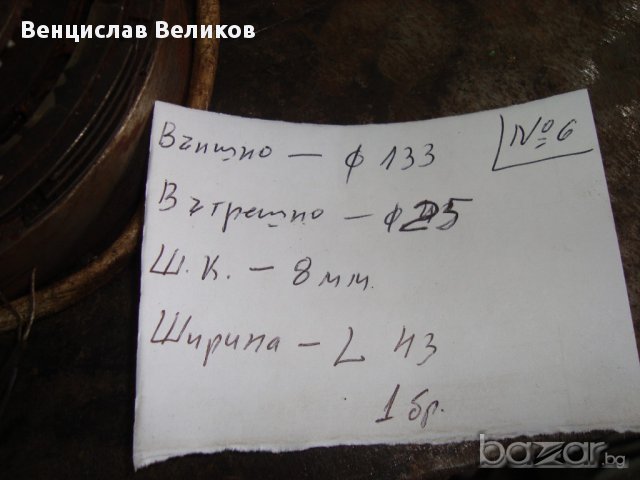 Венцислав Великов
№ 6
Външно - ф 133
Вътрешно - ф 25
Ш.К. - 8 мм.
Ширина - L 43
1 бр.
bazar.bg